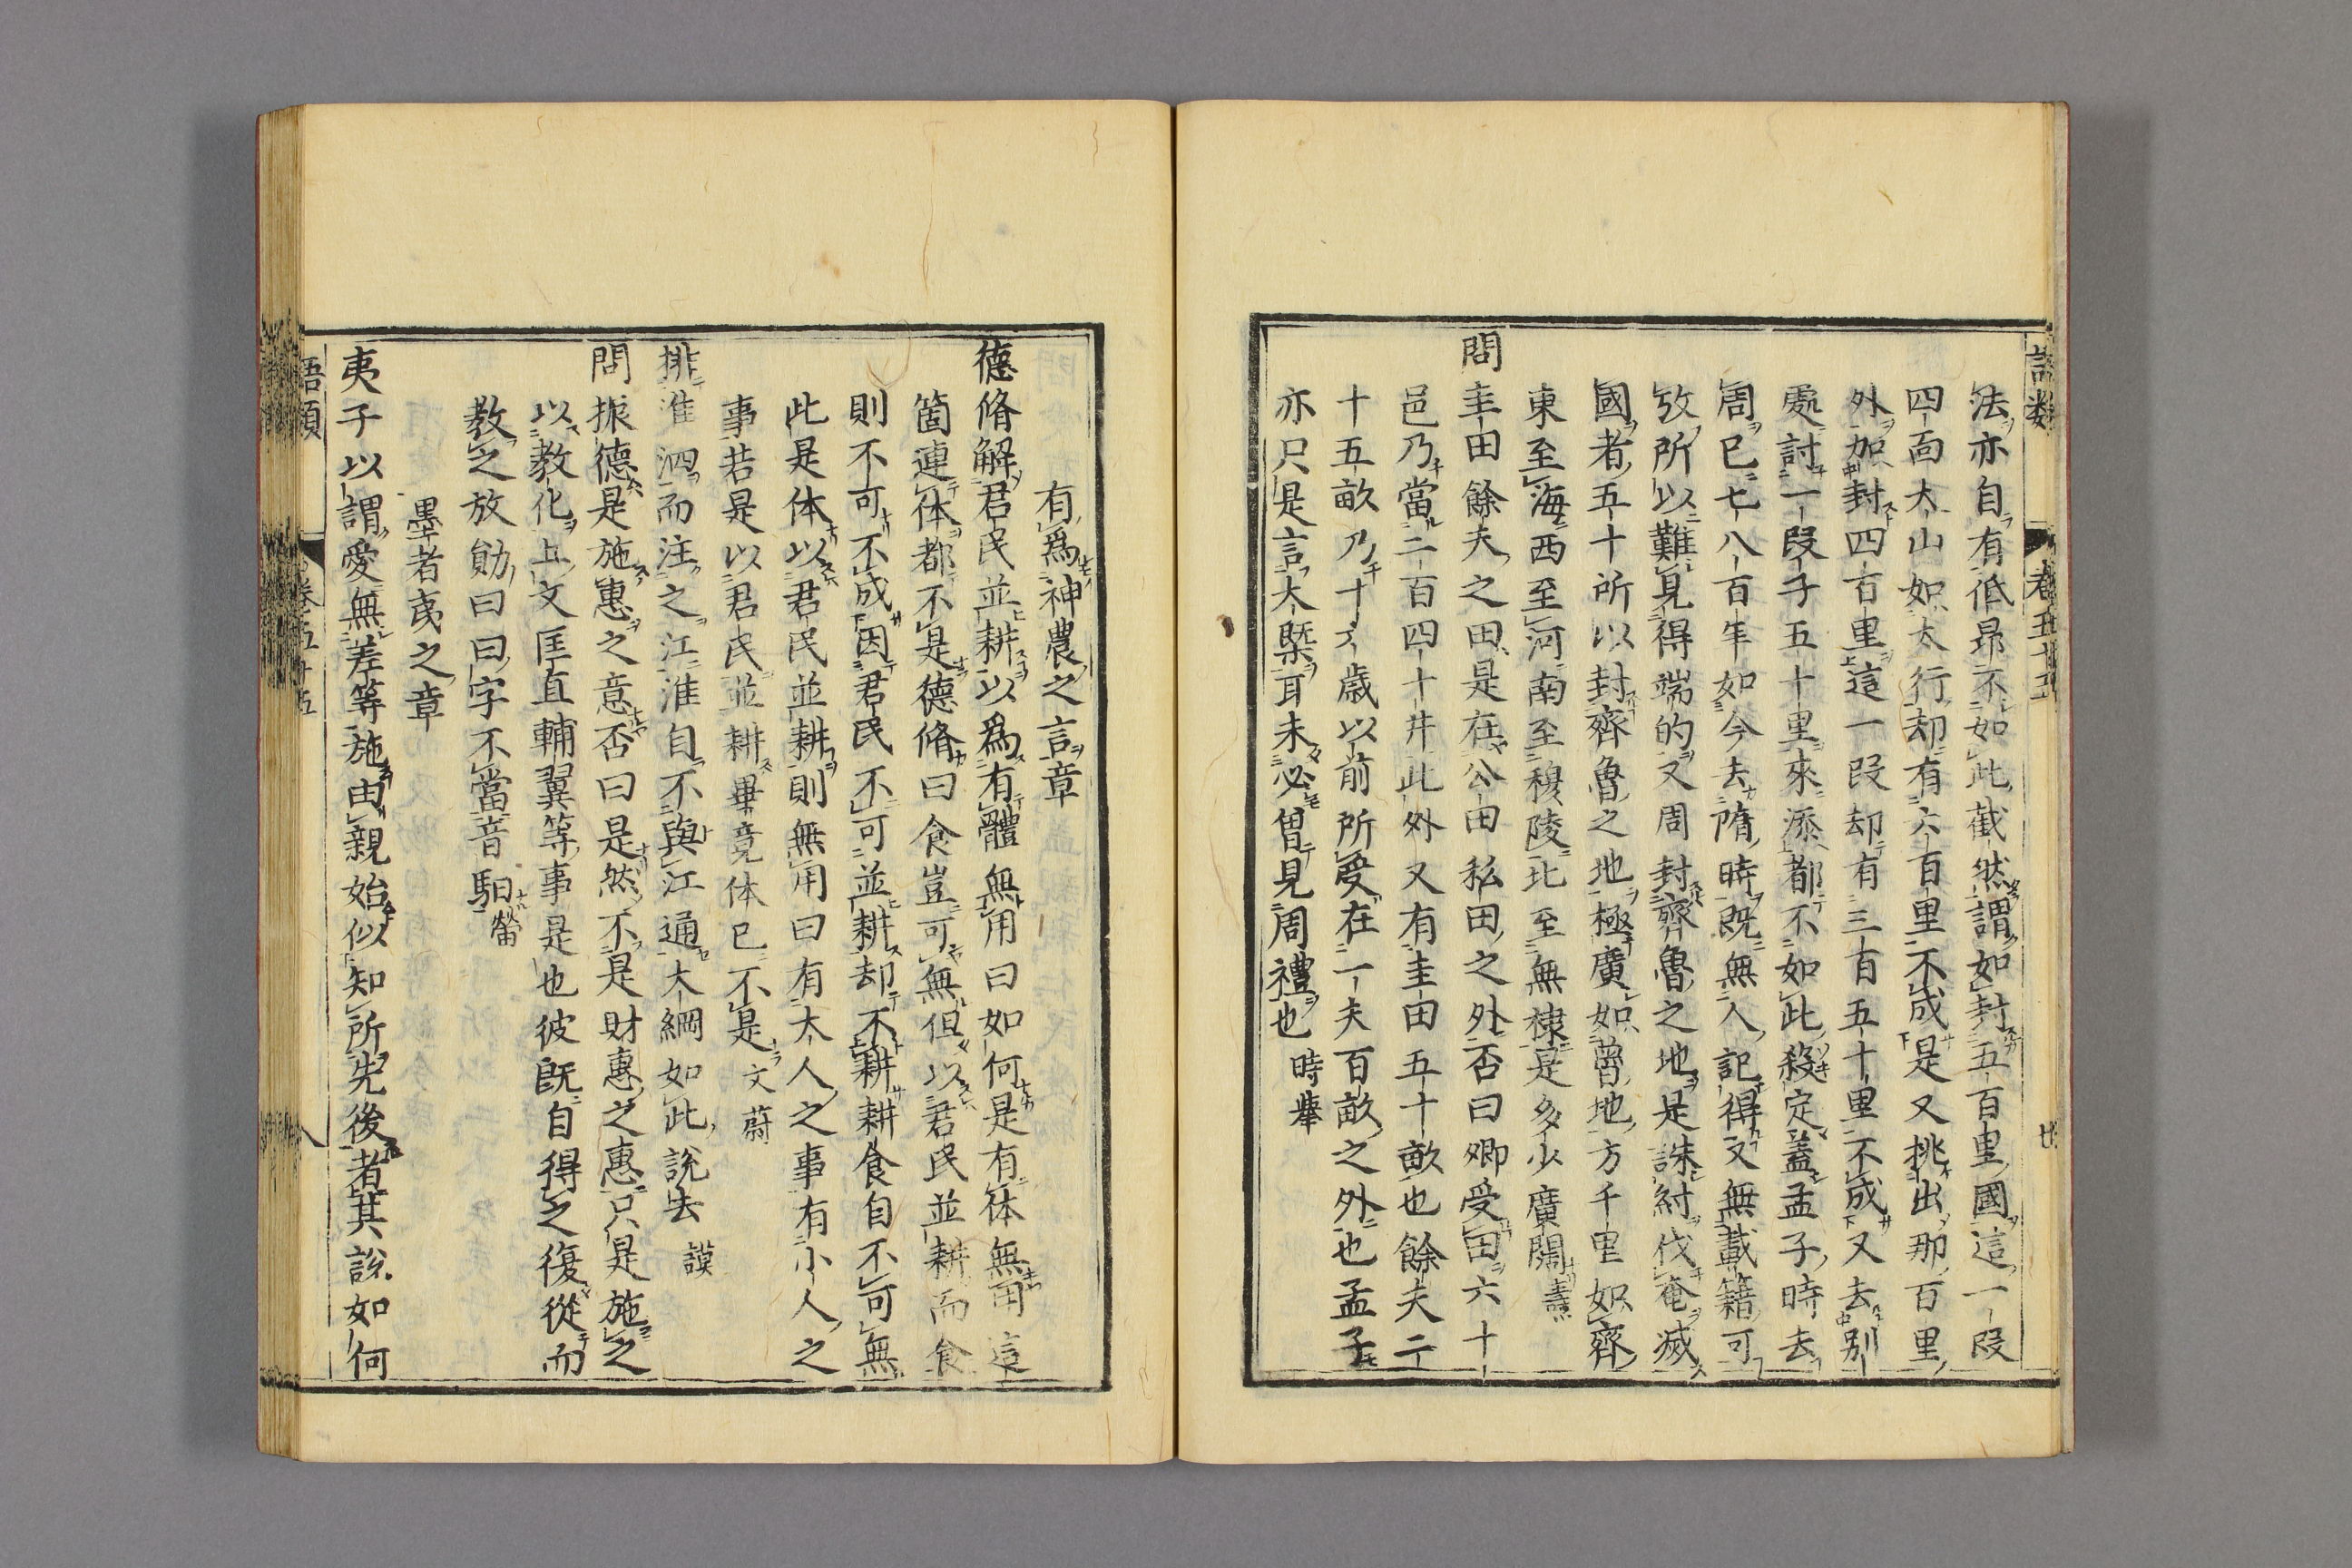 法亦自有低昂不如此截然謂如封五百里國這一段
四面大山如太行却有六百里不成是又挑出那百里
外加封四百里這一段却有三百五十里不成又去別
處討一段子五十里來添都不如此殺定蓋孟子時去
周已七八百年如今去隋時既無人記得又無載籍可
攷所以難見得端的又周封齊魯之地是誅紂伐奄滅
國者五十所以封齊魯之地極廣如魯地方千里如齊
東至海西至河南至穆陵北至無棣是多少廣闊 燾
問圭田餘夫之田是在公田私田之外否曰卿受田六十
邑乃當二百四十井此外又有圭田五十畝也餘夫二
十五畝乃十六歲以前所受在一夫百畝之外也孟子
亦只是言大槩耳未必曾見周禮也 時擧
有為神農之言章
德脩解君民並耕以為有體無用曰如何是有体無用這
箇連体都不是德脩曰食豈可無但以君民並耕而食
則不可不成因君民不可並耕却不耕耕食自不可無
此是体以君民並耕則無用曰有大人之事有小人之
事若是以君民並耕畢竟体已不是 文蔚
排淮泗而注之江淮自不與江通大綱如此說去 謨
問振德是施惠之意否曰是然不是財惠之惠只是施之
以教化上文匡直輔翼等事是也彼既自得之復從而
教之放勛曰曰字不當音馹 㽦
墨者夷之章
夷子以謂愛無差等施由親始似知所先後者其說如何
語類 卷五十五